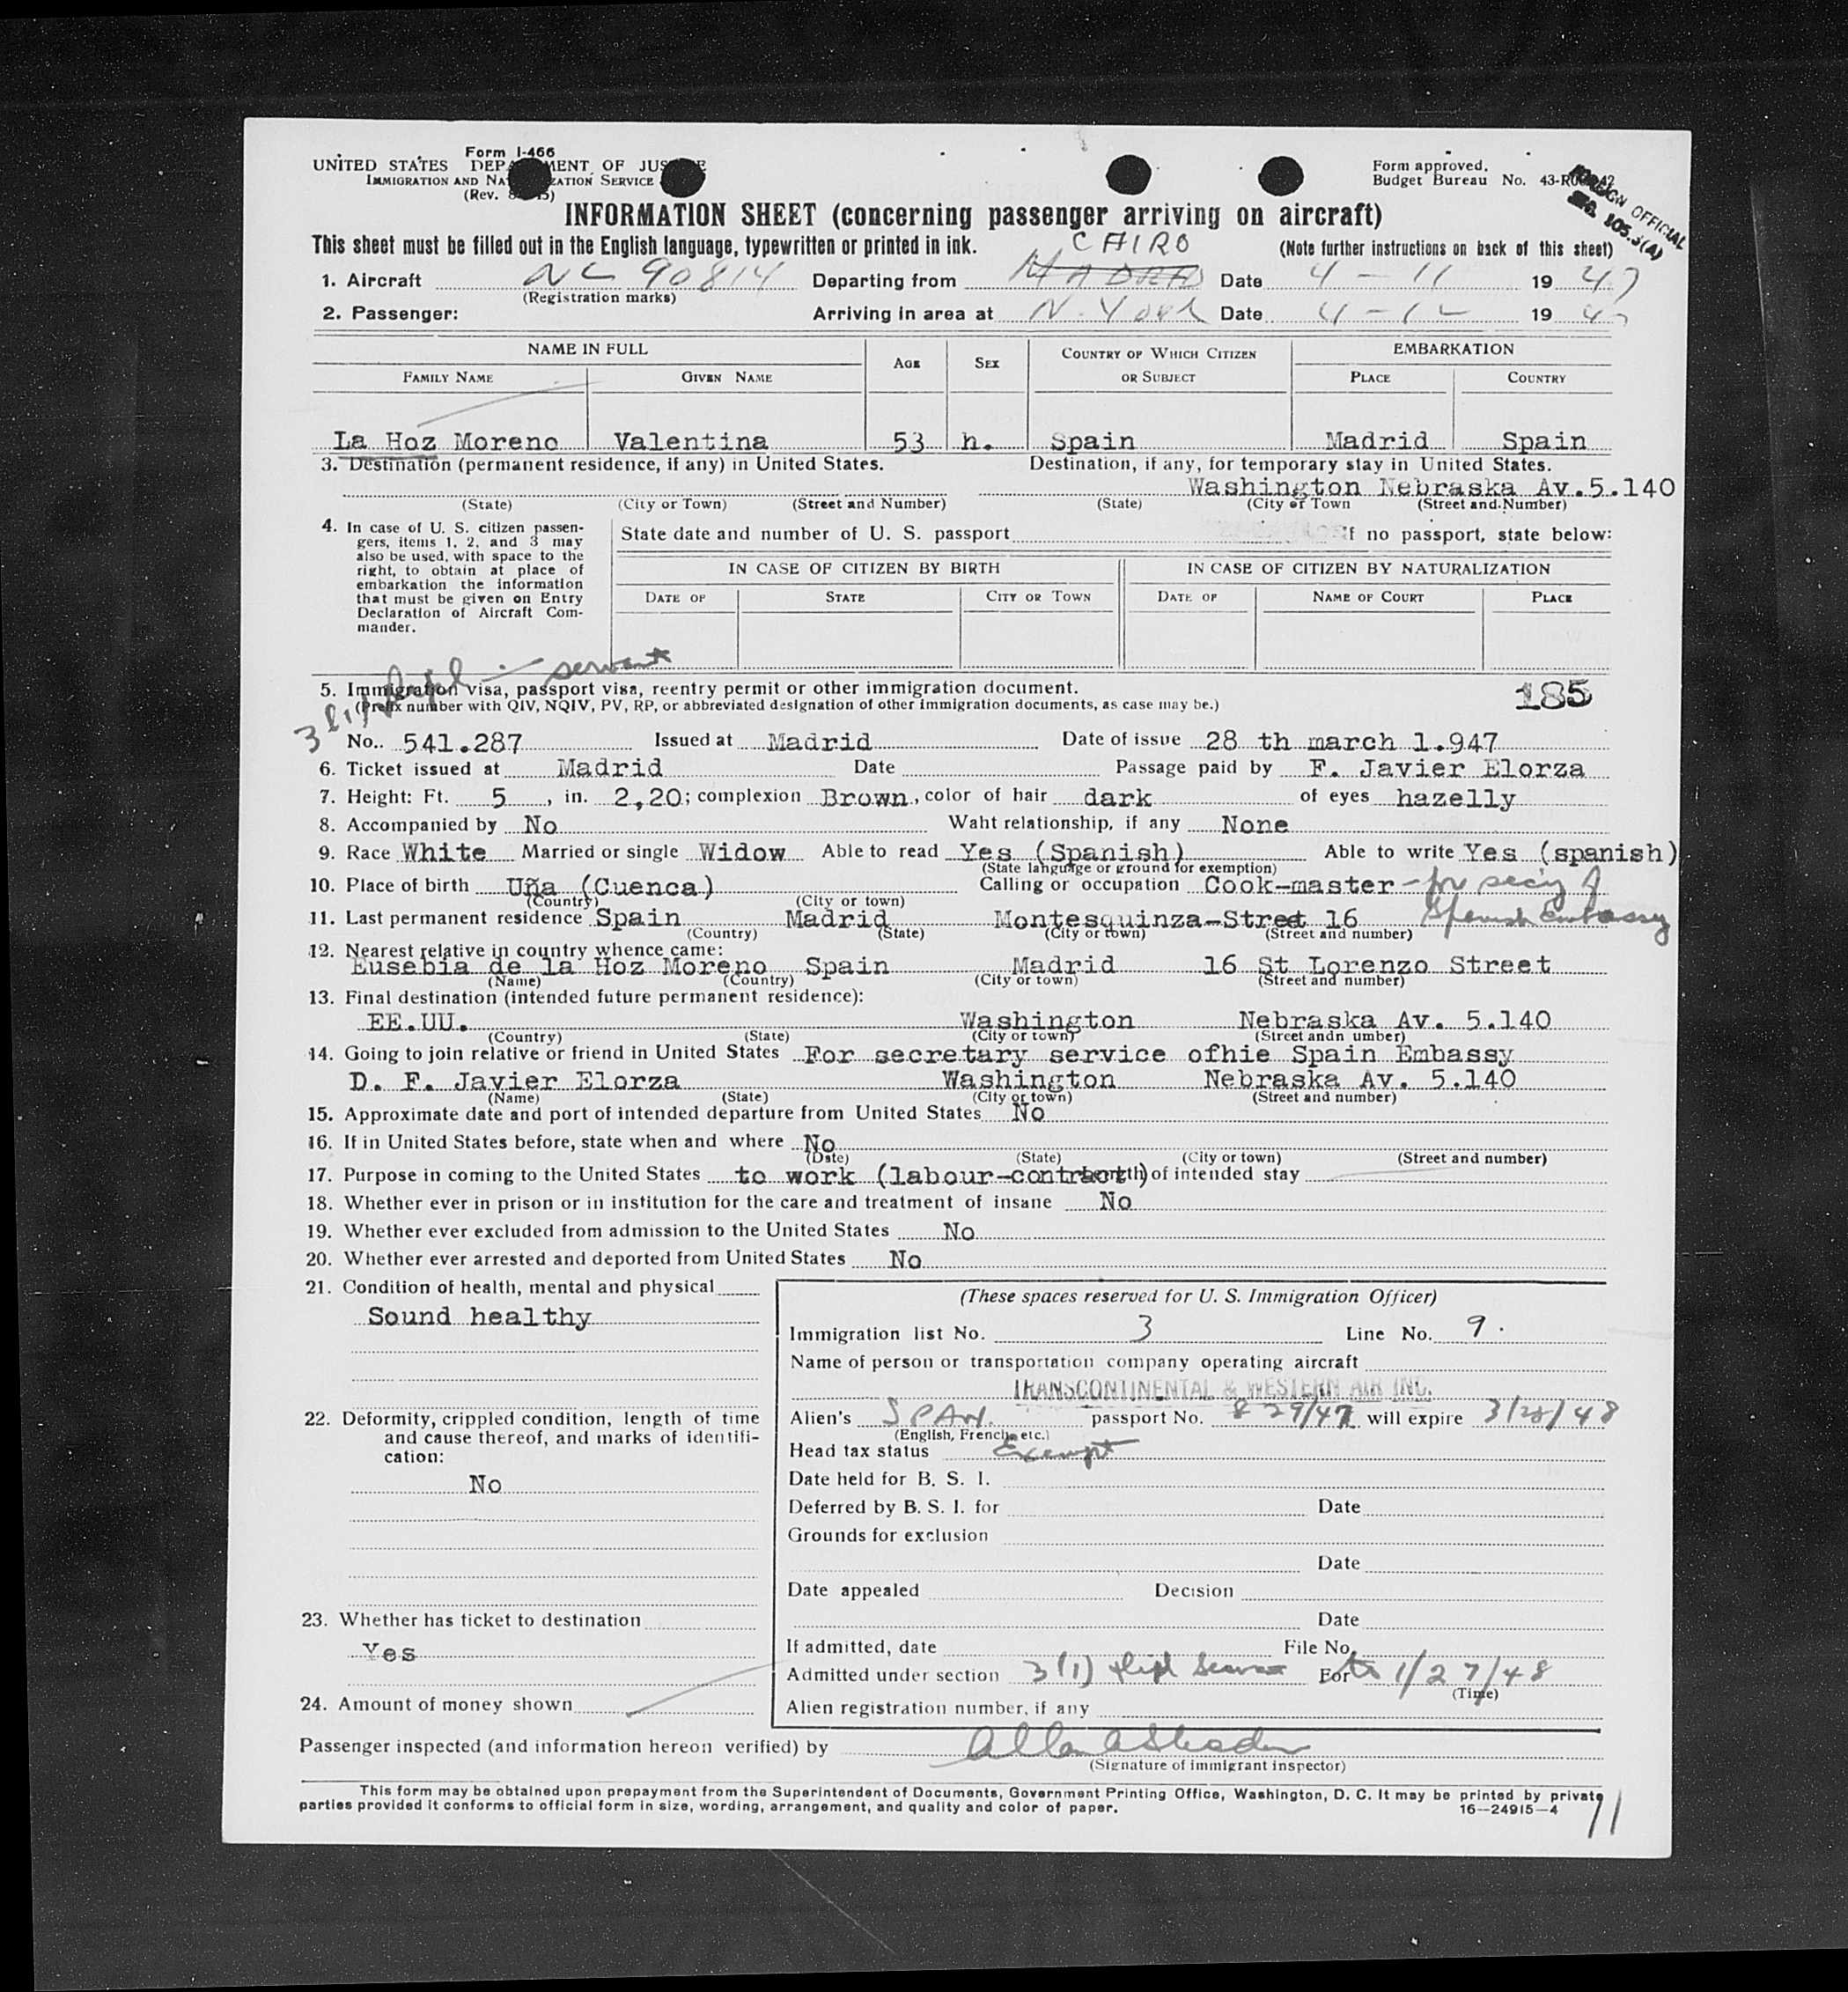 Form I-466
UNITED STATES DEPARTMENT OF JUSTICE
IMMIGRATION AND NATURALIZATION SERVICE
(Rev.
Form approved.
Budget Bureau No. 43-R
FOREIGN OFFICIAL
105.3(A)
INFORMATION SHEET (concerning passenger arriving on aircraft)
This sheet must be filled out in the English language, typewritten or printed in ink.
(Note further instructions on back of this sheet)
CAIRO
1. Aircraft NC 90814 Departing from MADRID Date 4-11 1947
(Registration marks)
2. Passenger: Arriving in area at N. York Date 4-12 1947
NAME IN FULL AGE SEX COUNTRY OF WHICH CITIZEN OR SUBJECT EMBARKATION
FAMILY NAME GIVEN NAME PLACE COUNTRY
La Hoz Moreno Valentina 53 h. Spain Madrid Spain
3. Destination (permanent residence, if any) in United States. Destination, if any, for temporary stay in United States.
Washington Nebraska Av.5.140
(State) (City or Town) (Street and Number) (State) (City or Town (Street and Number)
4. In case of U. S. citizen passen-
gers, items 1, 2, and 3 may
also be used, with space to the
right, to obtain at place of
embarkation the information
that must be given on Entry
Declaration of Aircraft Com-
mander.
State date and number of U. S. passport If no passport, state below:
IN CASE OF CITIZEN BY BIRTH IN CASE OF CITIZEN BY NATURALIZATION
DATE OF STATE CITY OR TOWN DATE OF NAME OF COURT PLACE
3(1) servant
5. Immigration visa, passport visa, reentry permit or other immigration document.
(Prefix number with QIV, NQIV, PV, RP, or abbreviated designation of other immigration documents, as case may be.)
185
No.. 541.287 Issued at Madrid Date of issue 28 th march 1.947
6. Ticket issued at Madrid Date Passage paid by F. Javier Elorza
7. Height: Ft. 5, in. 2,20; complexion Brown, color of hair dark of eyes hazelly
8. Accompanied by No Waht relationship, if any None
9. Race White Married or single Widow Able to read Yes (Spanish) Able to write Yes (spanish)
(State language or ground for exemption)
10. Place of birth Uña (Cuenca) Calling or occupation Cook-master - for sec'y of
(Country) (City or town)
Spanish Embassy
11. Last permanent residence Spain Madrid Montesquinza-Street 16
(Country) (State) (City or town) (Street and number)
12. Nearest relative in country whence came:
Eusebia de la Hoz Moreno Spain Madrid 16 St Lorenzo Street
(Name) (Country) (City or town) (Street and number)
13. Final destination (intended future permanent residence):
EE.UU. Washington Nebraska Av. 5.140
(Country) (State) (City or town) (Street andn umber)
14. Going to join relative or friend in United States For secretary service ofhie Spain Embassy
D. F. Javier Elorza Washington Nebraska Av. 5.140
(Name) (State) (City or town) (Street and number)
15. Approximate date and port of intended departure from United States No
16. If in United States before, state when and where No
(Date) (State) (City or town) (Street and number)
17. Purpose in coming to the United States to work (labour-contract) Length of intended stay
18. Whether ever in prison or in institution for the care and treatment of insane No
19. Whether ever excluded from admission to the United States No
20. Whether ever arrested and deported from United States No
21. Condition of health, mental and physical
Sound healthy
22. Deformity, crippled condition, length of time
and cause thereof, and marks of identifi-
cation:
No
23. Whether has ticket to destination
Yes
24. Amount of money shown
(These spaces reserved for U. S. Immigration Officer)
Immigration list No. 3 Line No. 9.
Name of person or transportation company operating aircraft
TRANSCONTINENTAL & WESTERN AIR INC.
Alien's SPAN. passport No. 829/47 will expire 3/28/48
(English, French, etc.)
Head tax status Exempt
Date held for B. S. I.
Deferred by B. S. I. for Date
Grounds for exclusion
Date
Date appealed Decision
Date
If admitted, date File No.
Admitted under section 3(1) For to 1/27/48
(Time)
Alien registration number, if any
Passenger inspected (and information hereon verified) by
(Signature of immigrant inspector)
This form may be obtained upon prepayment from the Superintendent of Documents, Government Printing Office, Washington, D. C. It may be printed by private
parties provided it conforms to official form in size, wording, arrangement, and quality and color of paper. 16—24915—4